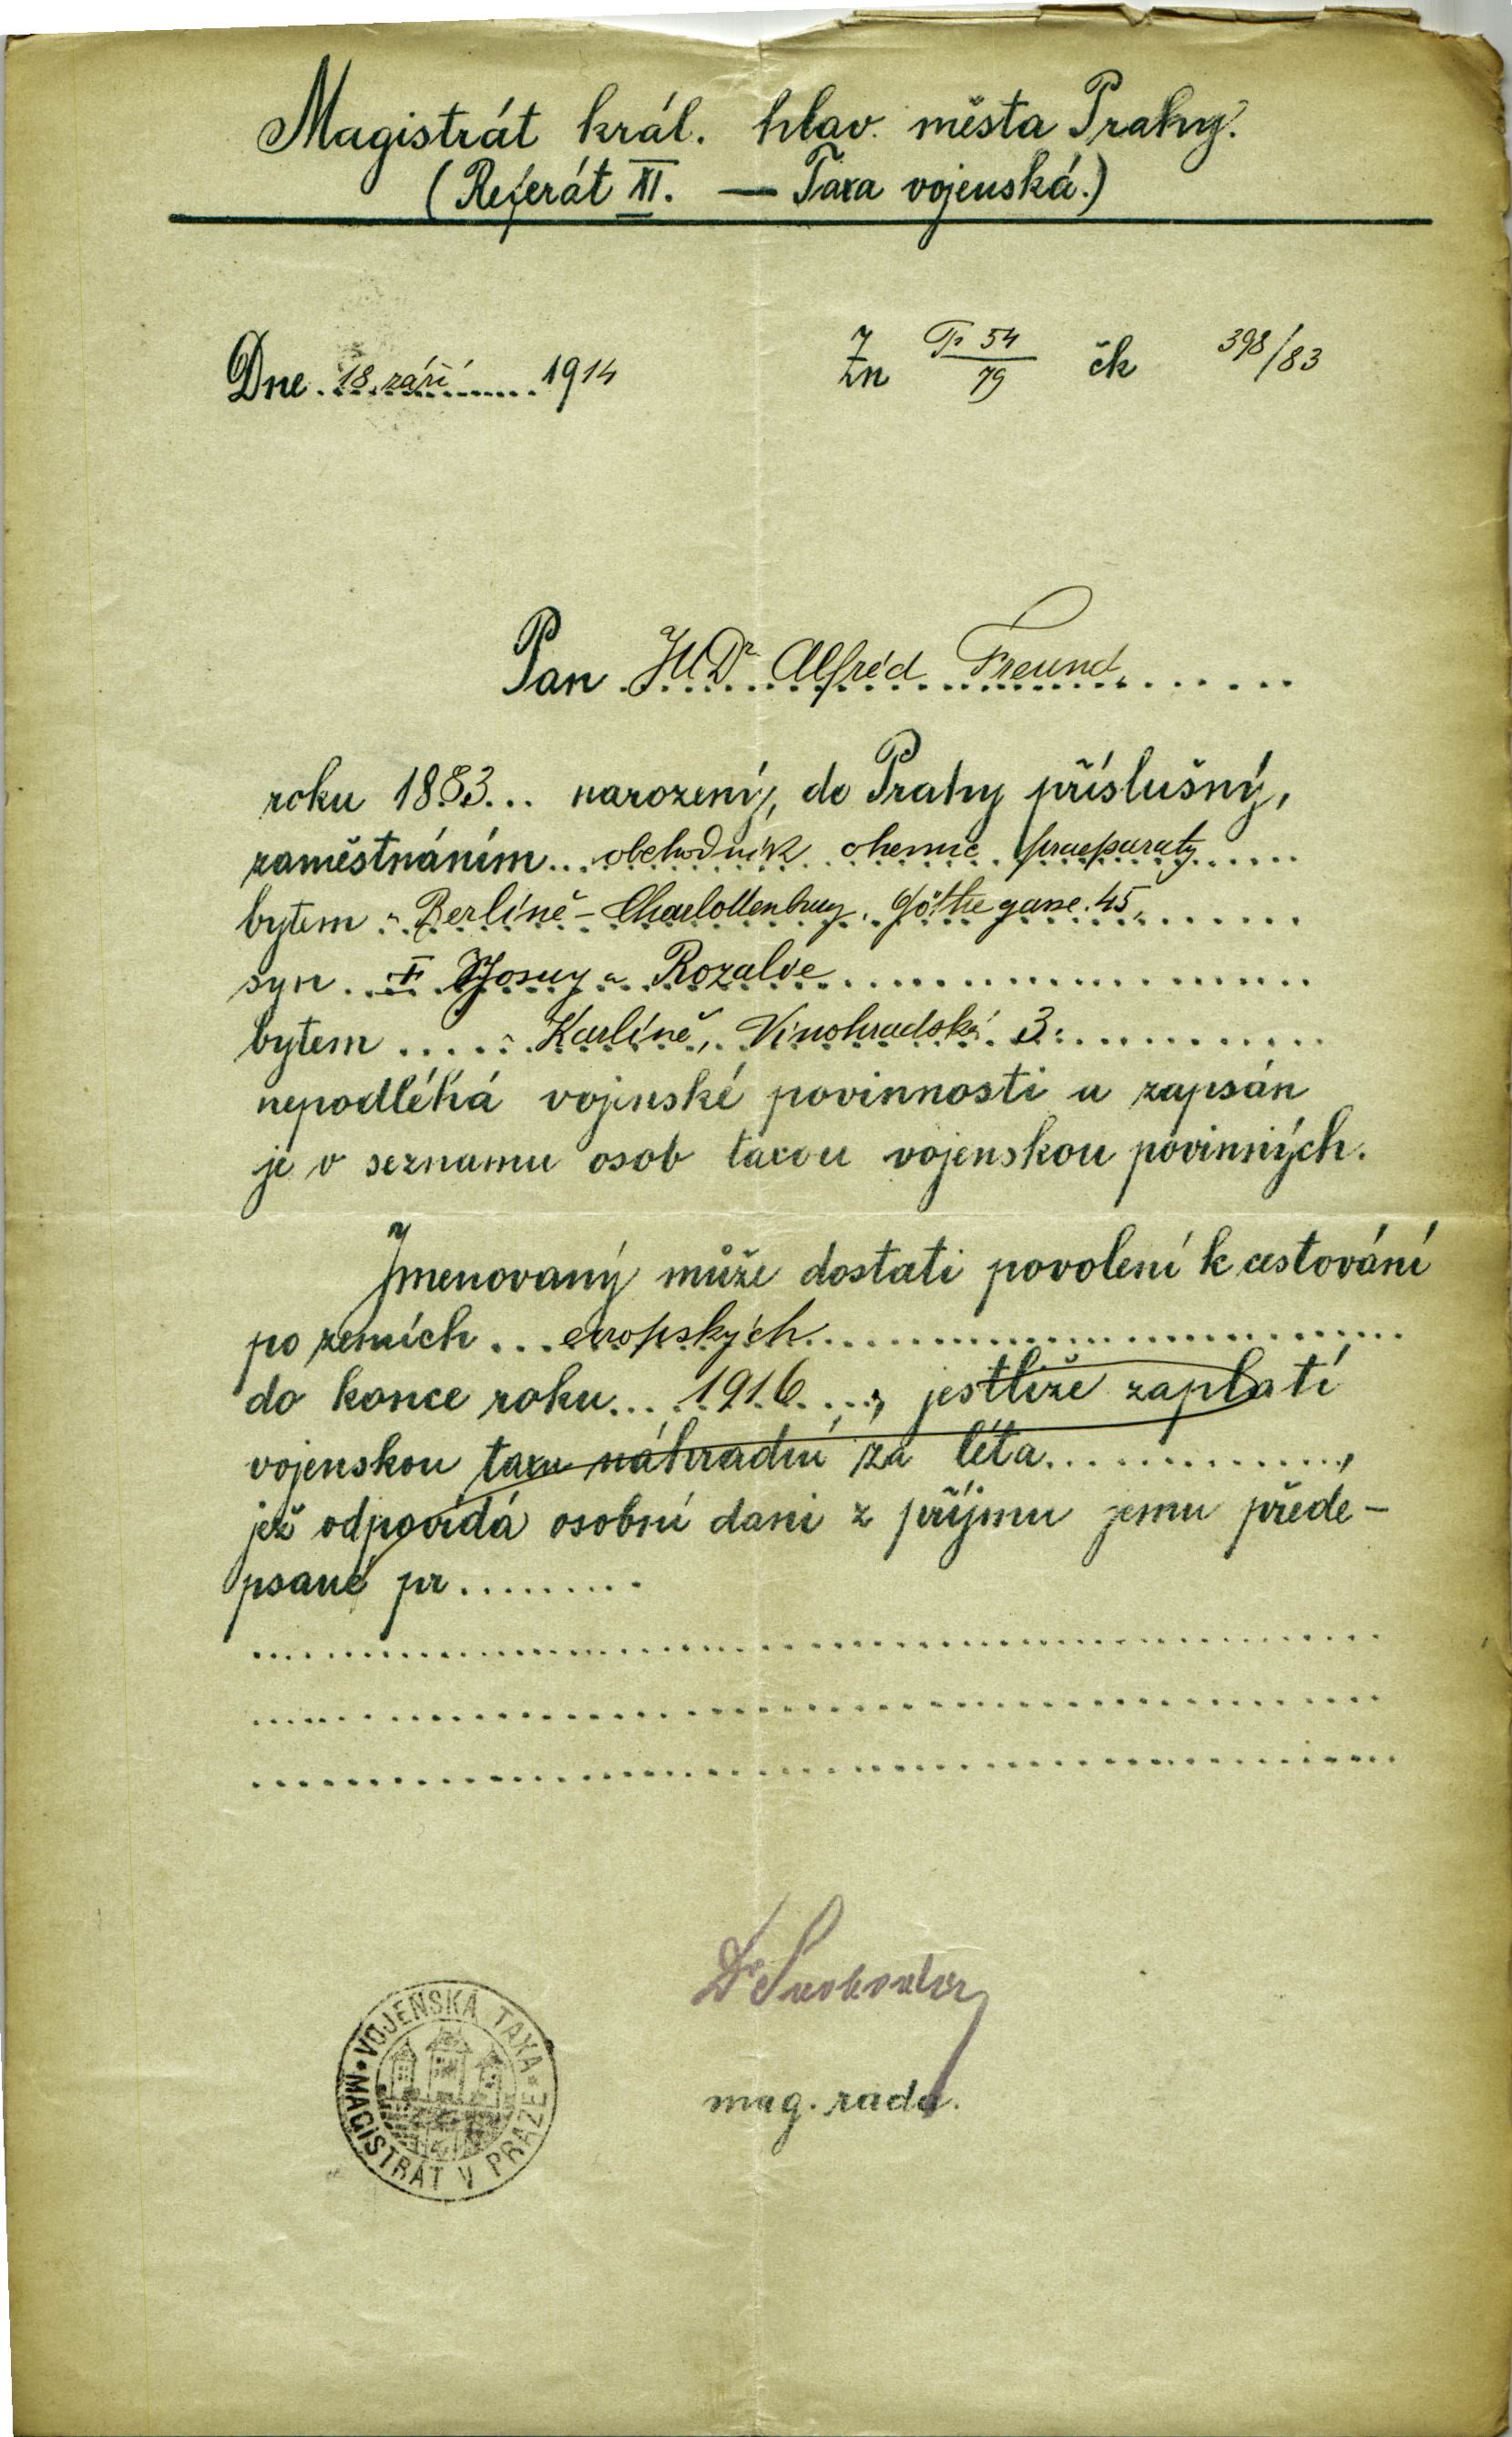 Magistrát král. hlav. města Prahy.
(Referát XI. — Taxa vojenská.)
Dne 18. září 1914
79 čk 398/83
Pan JUDr Alfréd Freund
roku 1883... narozený, do Prahy příslušný,
zaměstnáním... obchodník chemic. praeparaty
bytem v Berlíně - Charlottenburg, Göthe gasse 45,
syn † Josuy a Rozalie
bytem v Karlíně, Vinohradská 3.
nepodléhá vojenské povinnosti a zapsán
je v seznamu osob taxou vojenskou povinných.
Jmenovaný může dostati povolení k cestování
po zemích... evropských
do konce roku... 1916...., jestliže zaplatí
vojenskou taxu náhradní za léta..............,
jež odpovídá osobní dani z příjmu jemu přede-
psané pr.........
Dr Svoboda
mag. rada.
VOJENSKÁ TAXA
MAGISTRÁT V PRAZE